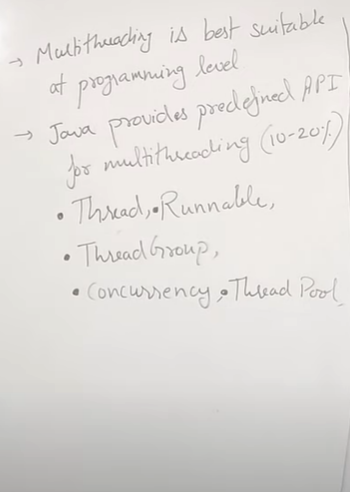 → Multithreading is best suitable
at programming level
→ Java provides predefined API
for multithreading (10-20%)
• Thread, • Runnable,
• ThreadGroup,
• Concurrency, • Thread Pool